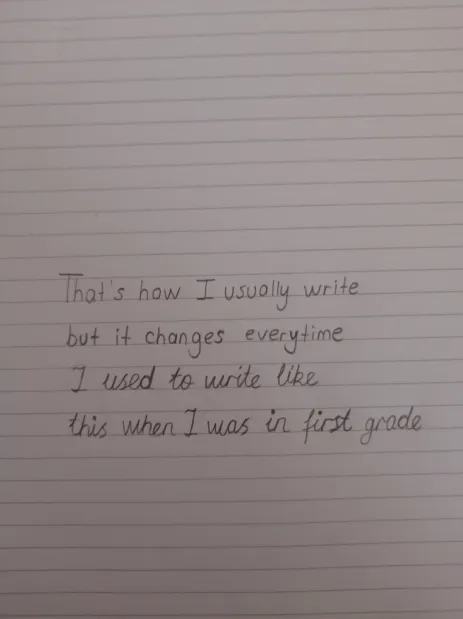 That's how I usually write
but it changes everytime
I used to write like
this when I was in first grade